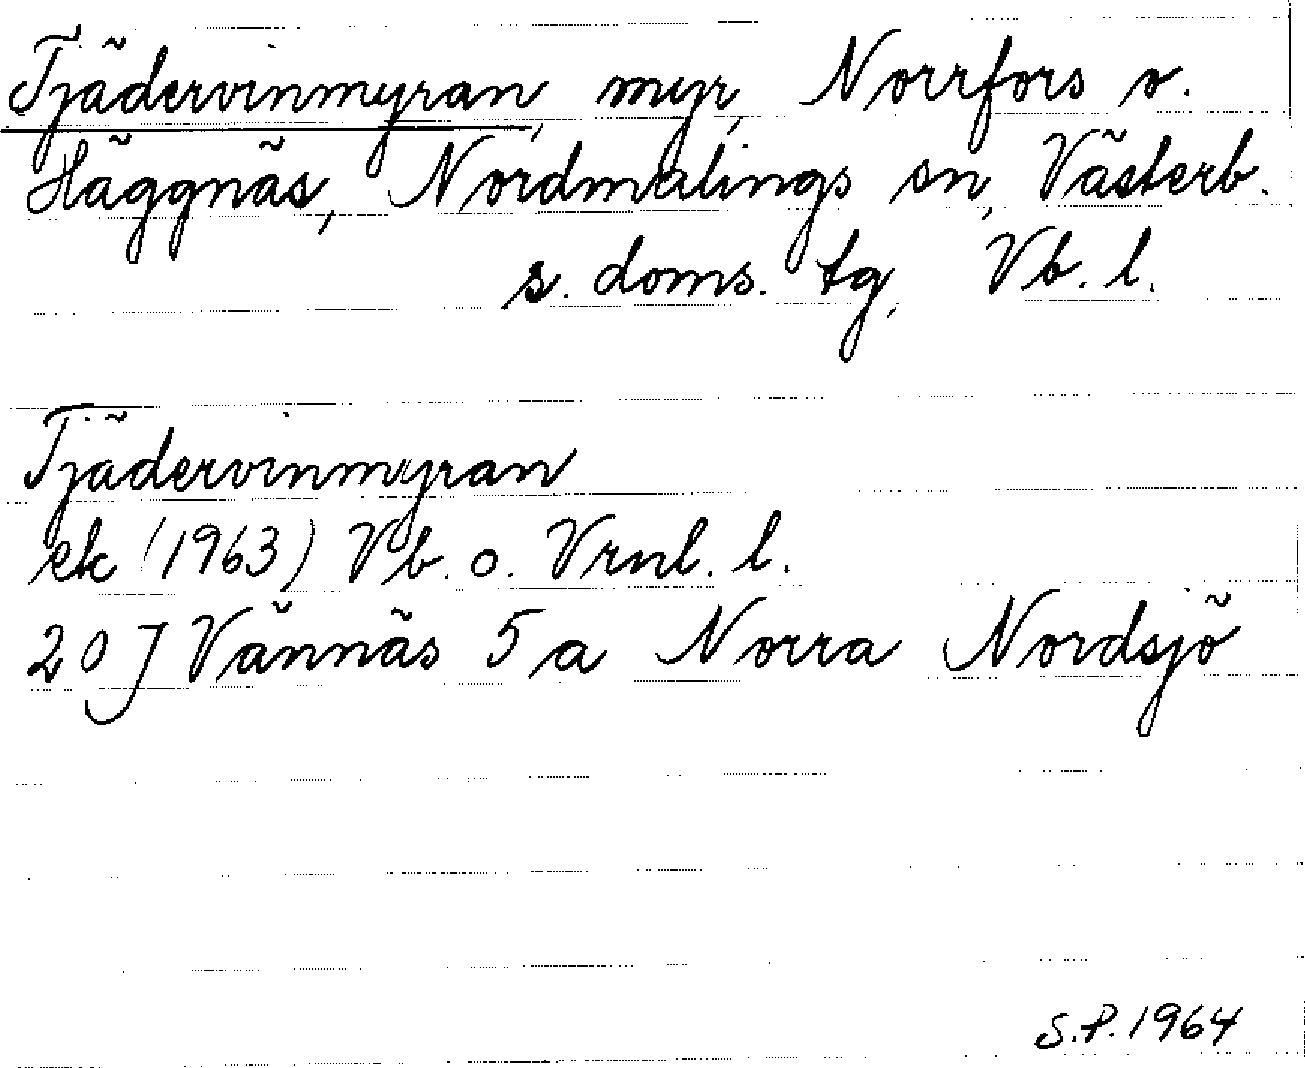 Tjädervinmyran, myr, Norrfors o.
Häggnäs, Nordmalings sn, Västerb.
s. doms. tg, Vb. l.
Tjädervinmyran
ek (1963) Vb. o. Vrnl. l.
20 J Vännäs 5 a Norra Nordsjö
S.P. 1964